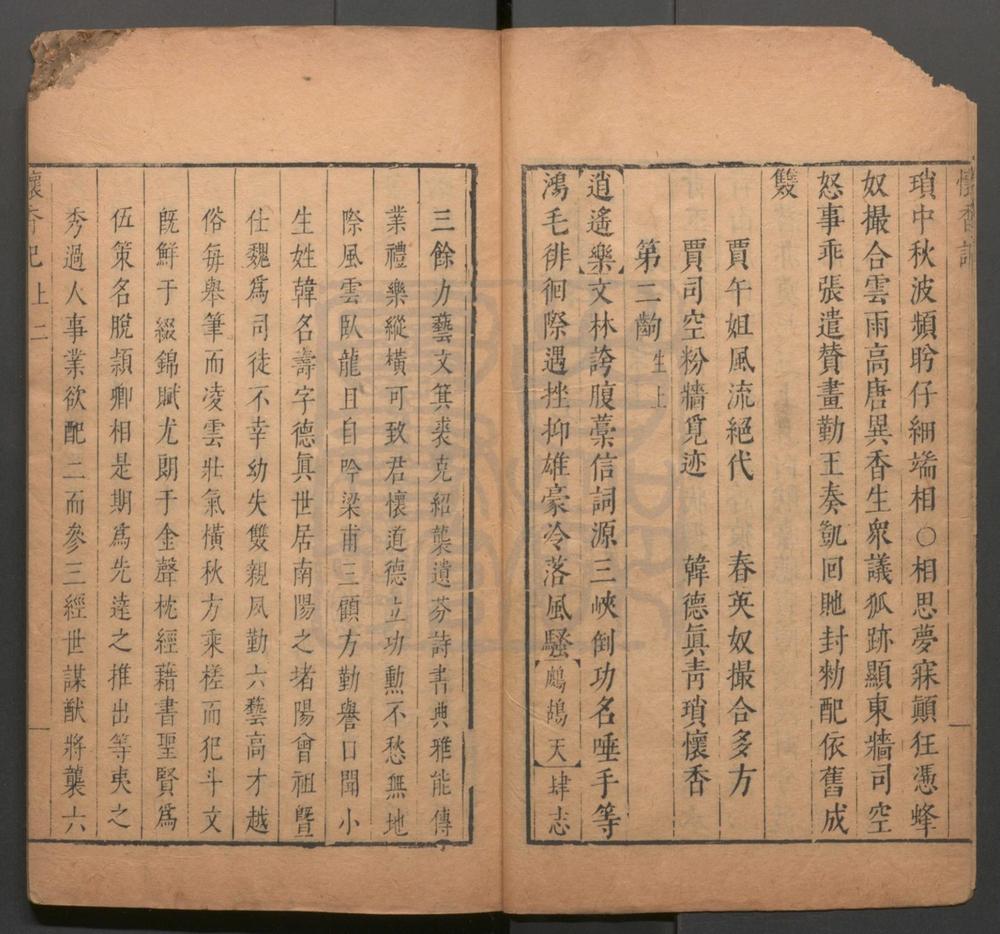 懷香記
瑣中秋波頻盻仔細端相○相思夢寐顛狂憑蜂
奴撮合雲雨高唐異香生衆議狐跡顯東牆司空
怒事乖張遣贊畫勤王奏凱回貤封勑配依舊成
雙
賈午姐風流絕代　春英奴撮合多方
賈司空粉牆覓迹　韓德眞靑瑣懷香
第二齣生上
【逍遙樂】文林誇腹藁信詞源三峽倒功名唾手等
鴻毛徘徊際遇挫抑雄豪冷落風騷【鷓鴣天】肆志
三餘力藝文箕裘克紹襲遺芬詩書典雅能傳
業禮樂縱橫可致君懷道德立功勲不愁無地
際風雲臥龍且自吟梁甫三顧方勤譽口聞小
生姓韓名壽字德眞世居南陽之堵陽曾祖曁
仕魏爲司徒不幸幼失雙親夙勤六藝高才越
俗每舉筆而凌雲壯氣橫秋方乘槎而犯斗文
旣鮮于綴錦賦尤朗于金聲枕經藉書聖賢爲
伍策名脫潁卿相是期爲先達之推出等夷之
秀過人事業欲配二而參三經世謀猷將襲六
懷香記上 二